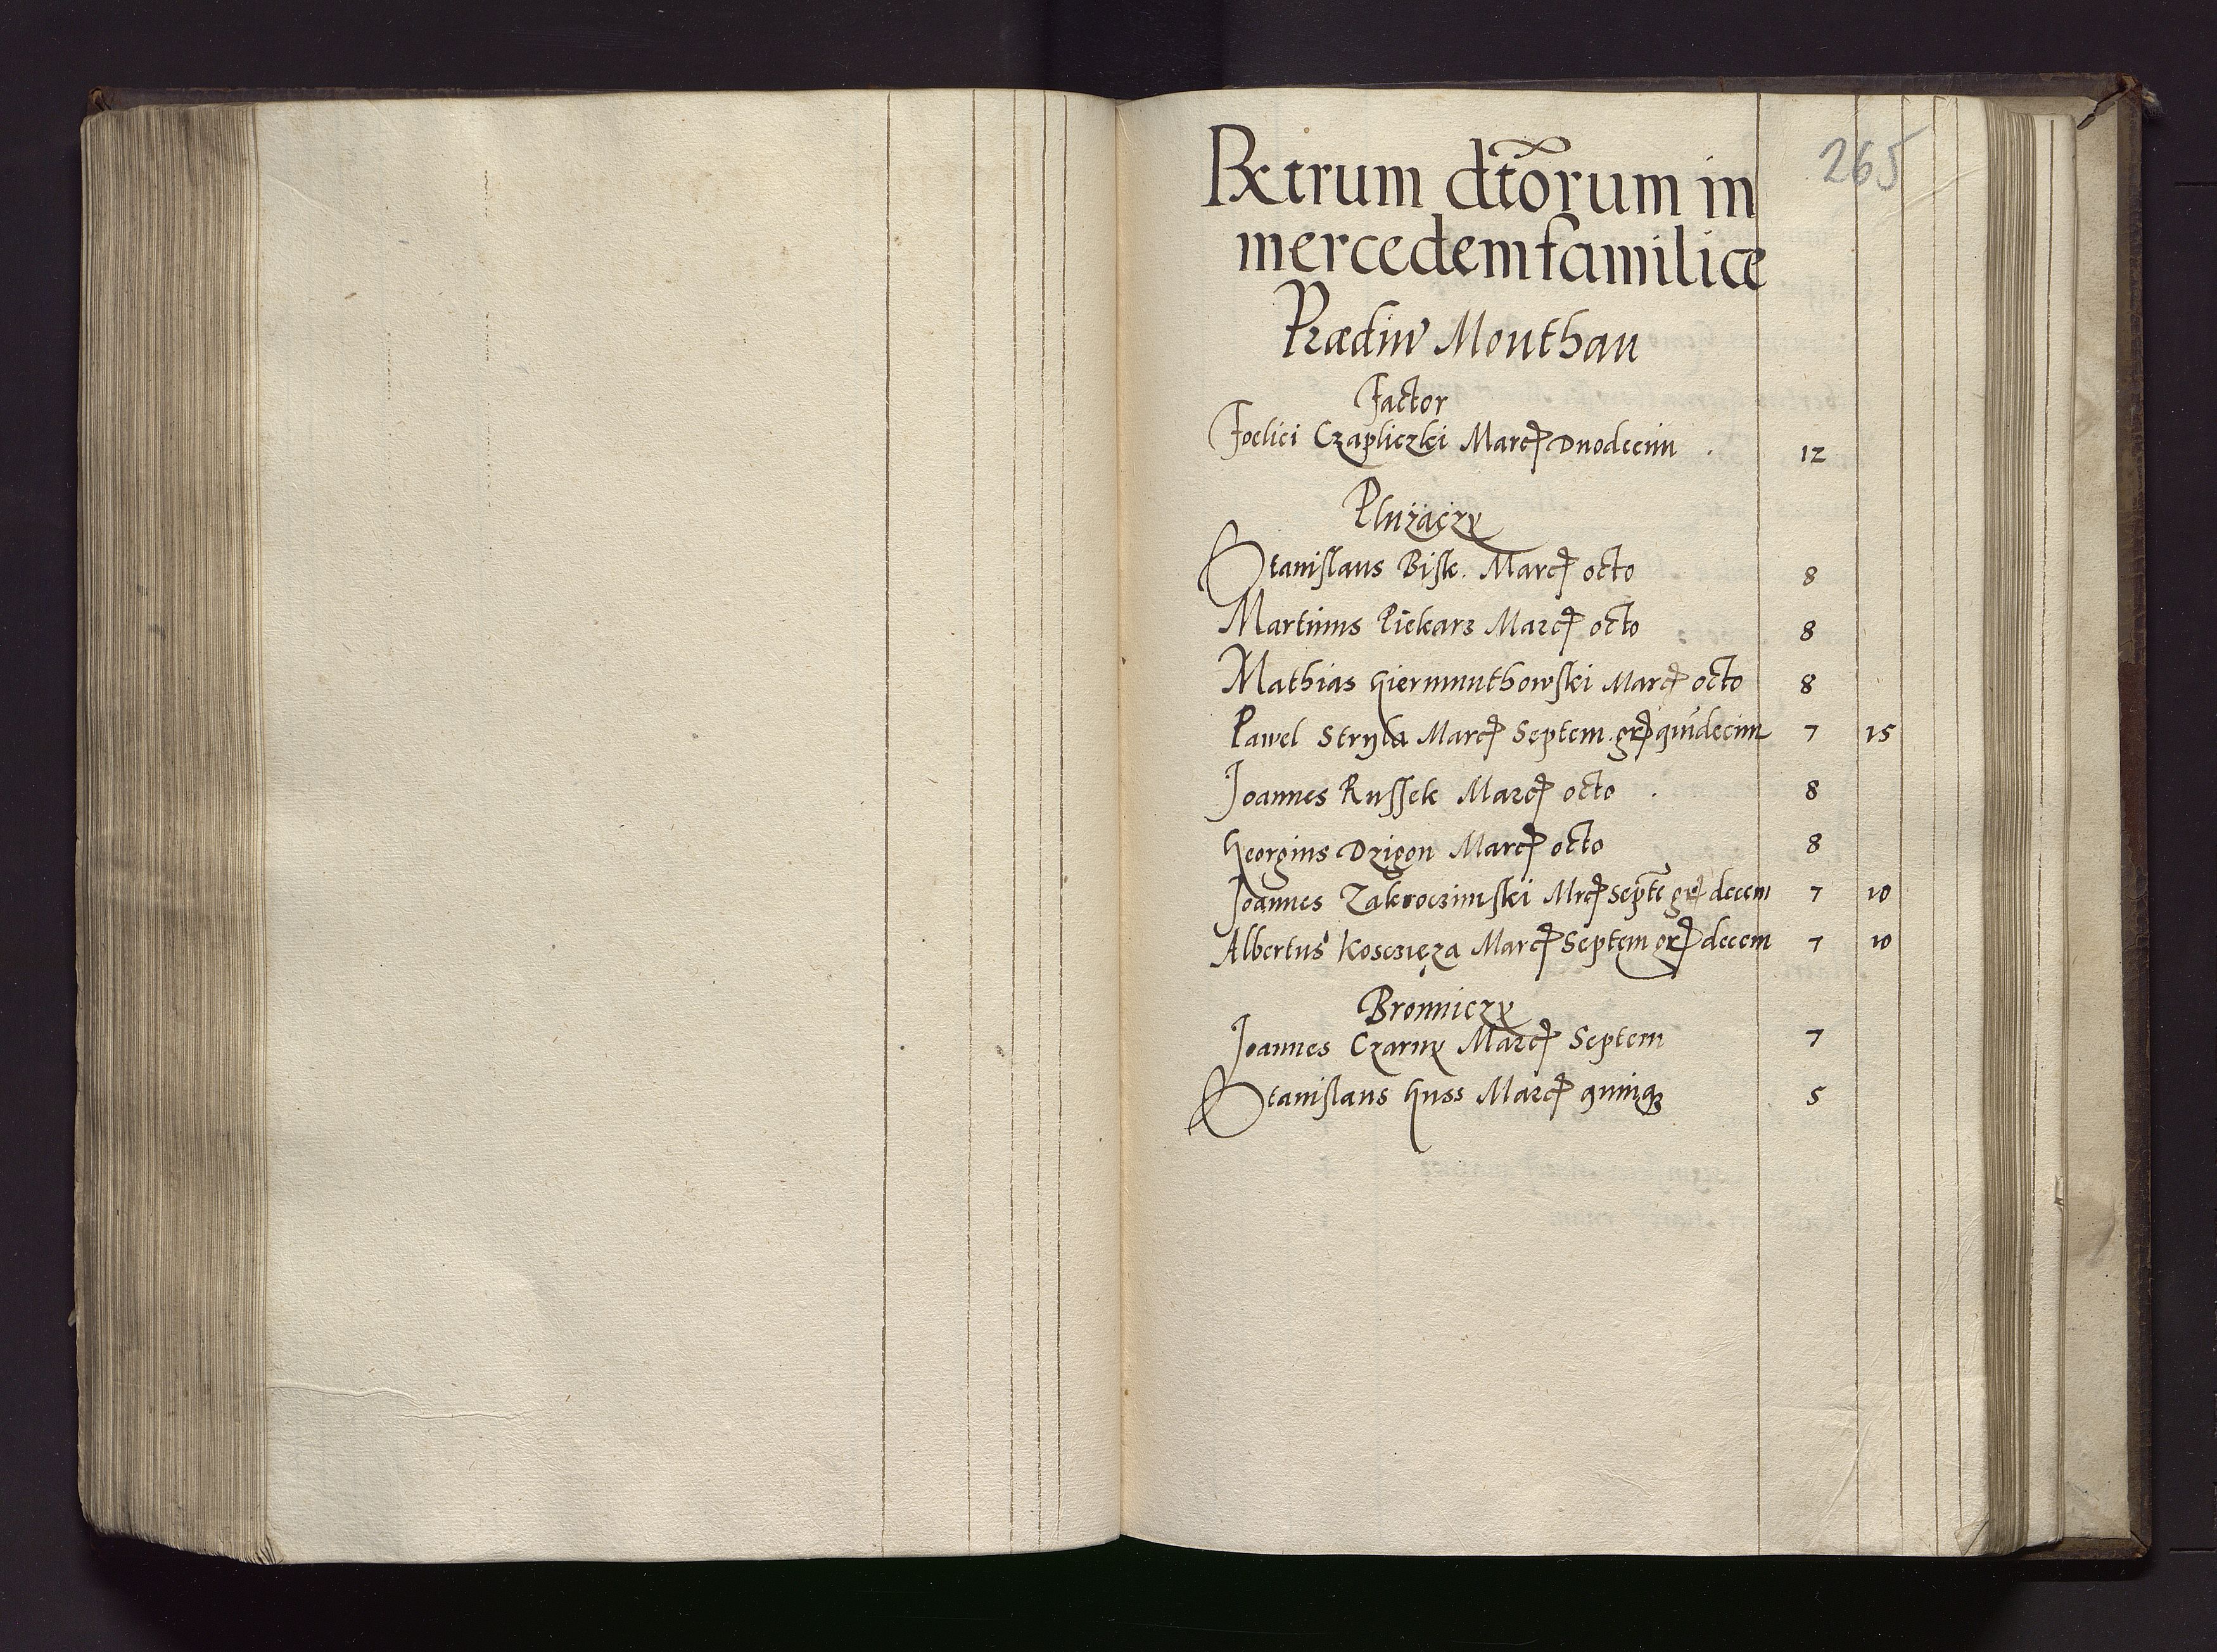 265
Rxtrum dtorum in
mercedem familiæ
Prædiw Monthau
Factor
Foelici Czapliczki Marc Duodecim 12
Pluzaczy
Stanislaus Bisk. Marc octo 8
Martinus Piekarz Marc octo 8
Mathias Giermunthowski Marc octo 8
Pawel Stryla Marc Septem gr quidecim 7 15
Joannes Russek Marc octo 8
Georgius Dzigon Marc octo 8
Joannes Zakroczimski Mrc Septē gr decem 7 10
Albertus Kosczięza Marc Septem gr decem 7 10
Bronniczy
Joannes Czarny Marc Septem 7
Stanislaus Guss Marc quinqꝫ 5